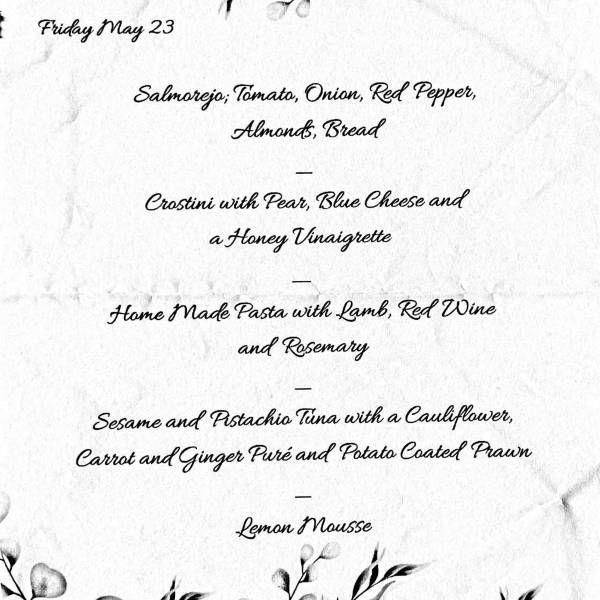 Friday May 23
Salmorejo; Tomato, Onion, Red Pepper,
Almonds, Bread
—
Crostini with Pear, Blue Cheese and
a Honey Vinaigrette
—
Home Made Pasta with Lamb, Red Wine
and Rosemary
—
Sesame and Pistachio Tuna with a Cauliflower,
Carrot and Ginger Puré and Potato Coated Prawn
—
Lemon Mousse